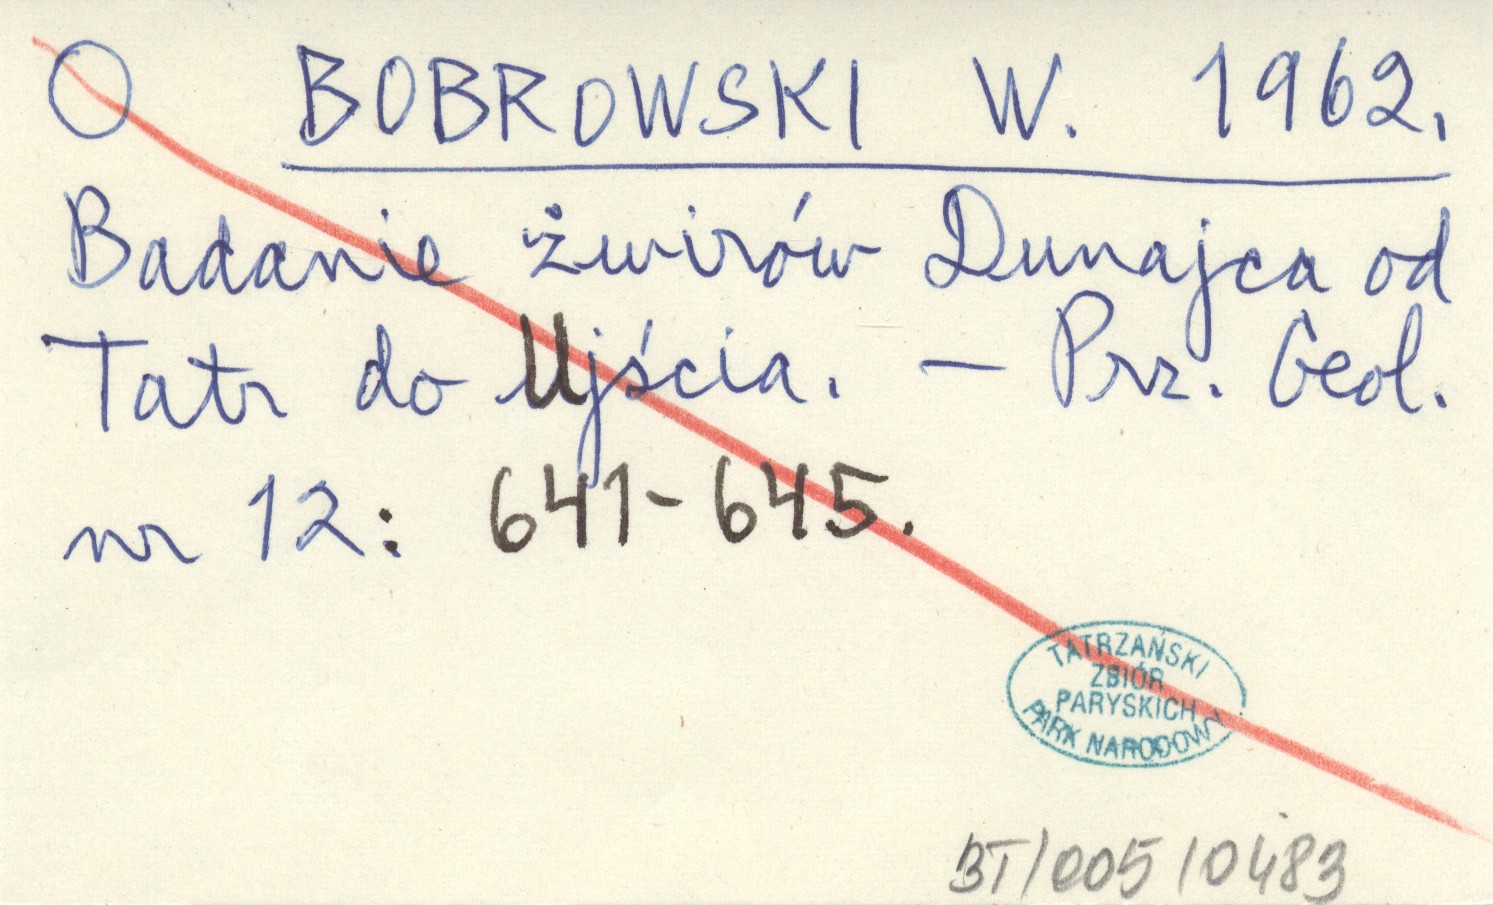 O BOBROWSKI W. 1962.
Badanie żwirów Dunajca od
Tatr do Ujścia. – Prz. Geol.
nr 12: 641-645.
TATRZAŃSKI
ZBIÓR
PARYSKICH
PARK NARODOWY
BT/005/0483